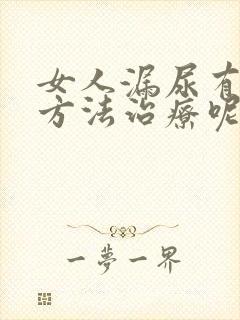 女人漏尿有
方法治療呢
一夢一界